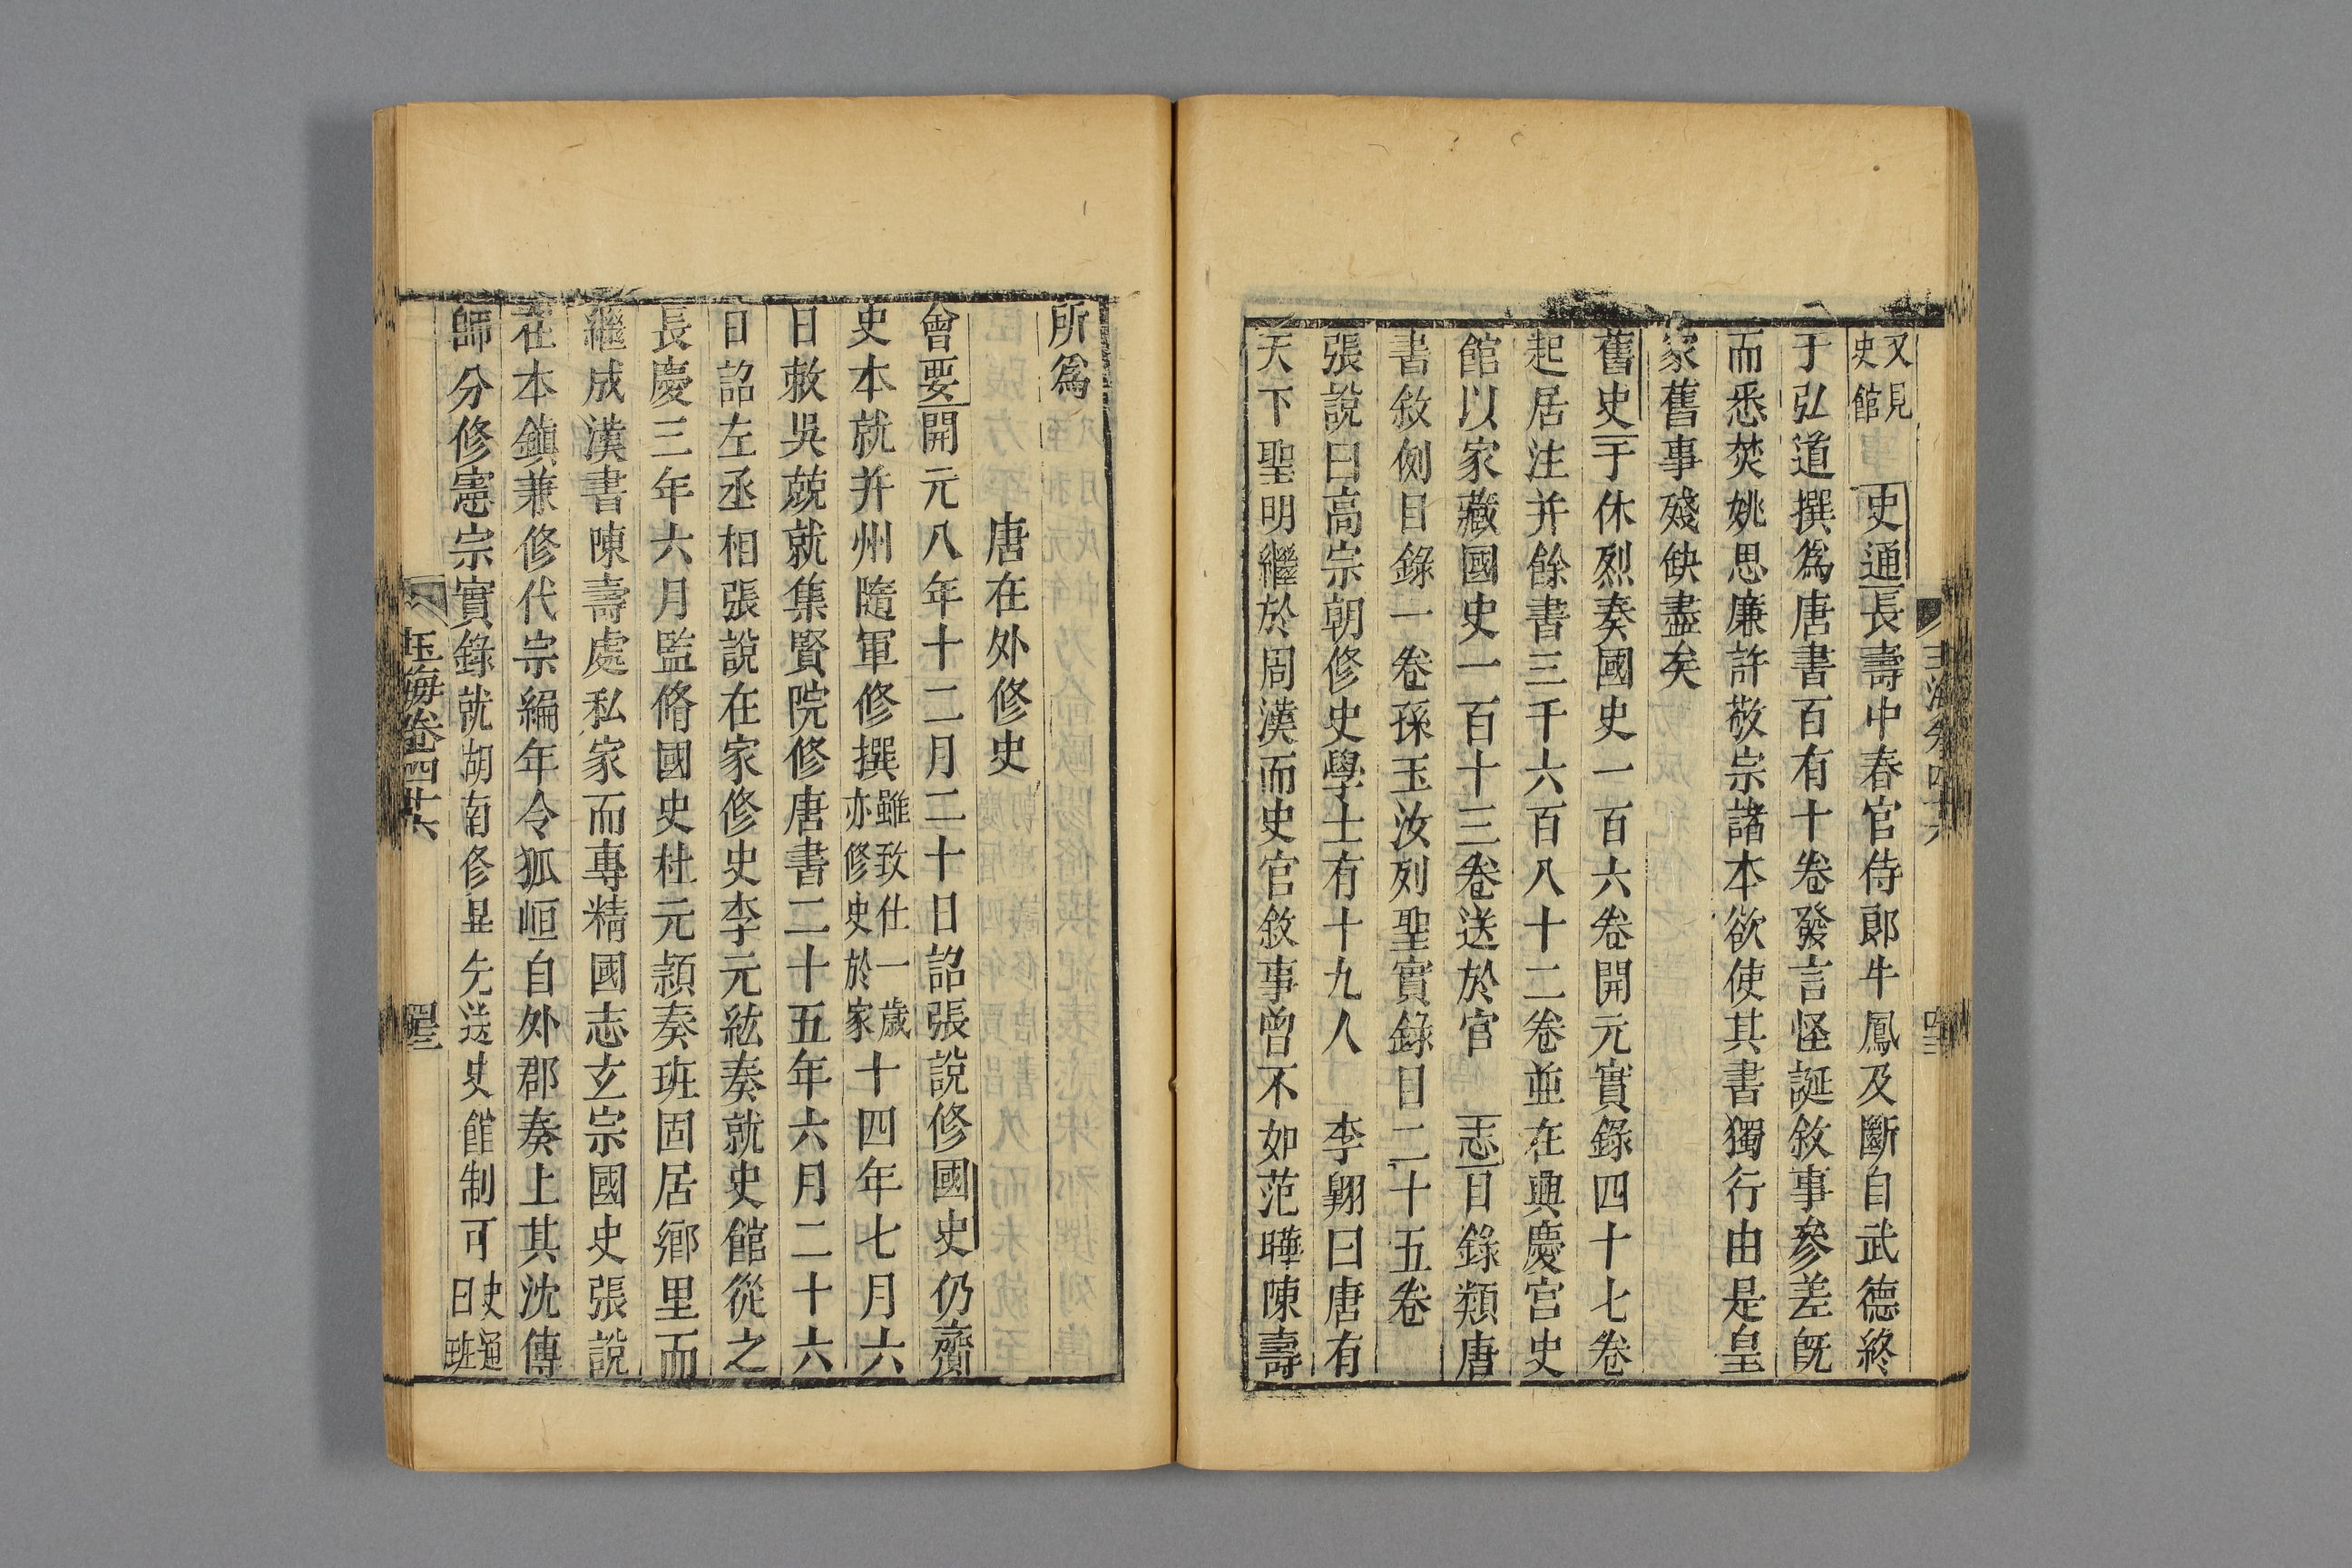 又見史館　史通長壽中春官侍郎牛鳳及斷自武德終
于弘道撰爲唐書百有十卷發言怪誕敘事參差旣
而悉焚姚思廉許敬宗諸本欲使其書獨行由是皇
家舊事殘缺盡矣
舊史于休烈奏國史一百六卷開元實錄四十七卷
起居注并餘書三千六百八十二卷並在興慶宮史
館以家藏國史一百十三卷送於官　志目錄類唐
書敘例目錄一卷孫玉汝列聖實錄目二十五卷
張說曰高宗朝修史學士有十九人　李翺曰唐有
天下聖明繼於周漢而史官敘事曾不如范曄陳壽
所爲
唐在外修史
會要開元八年十二月二十日詔張說修國史仍齎
史本就并州隨軍修撰雖致仕一歲亦修史於家十四年七月六
日敕吳兢就集賢院修唐書二十五年六月二十六
日詔左丞相張說在家修史李元紘奏就史館從之
長慶三年六月監脩國史杜元穎奏班固居鄉里而
繼成漢書陳壽處私家而專精國志玄宗國史張說
在本鎮兼修代宗編年令狐峘自外郡奏上其沈傳
師分修憲宗實錄就湖南修畢先送史館制可史通曰班
玉海卷四十六
四十三